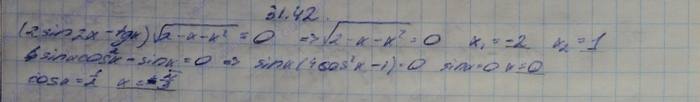 31.42.
(2sin2x-tgx)√2-x-x² = 0 => √2-x-x² = 0 x₁=-2 x₂=1
4sinxcos²x-sinx=0 => sinx(4cos²x-1)=0 sinx=0 x=0
cosx=½